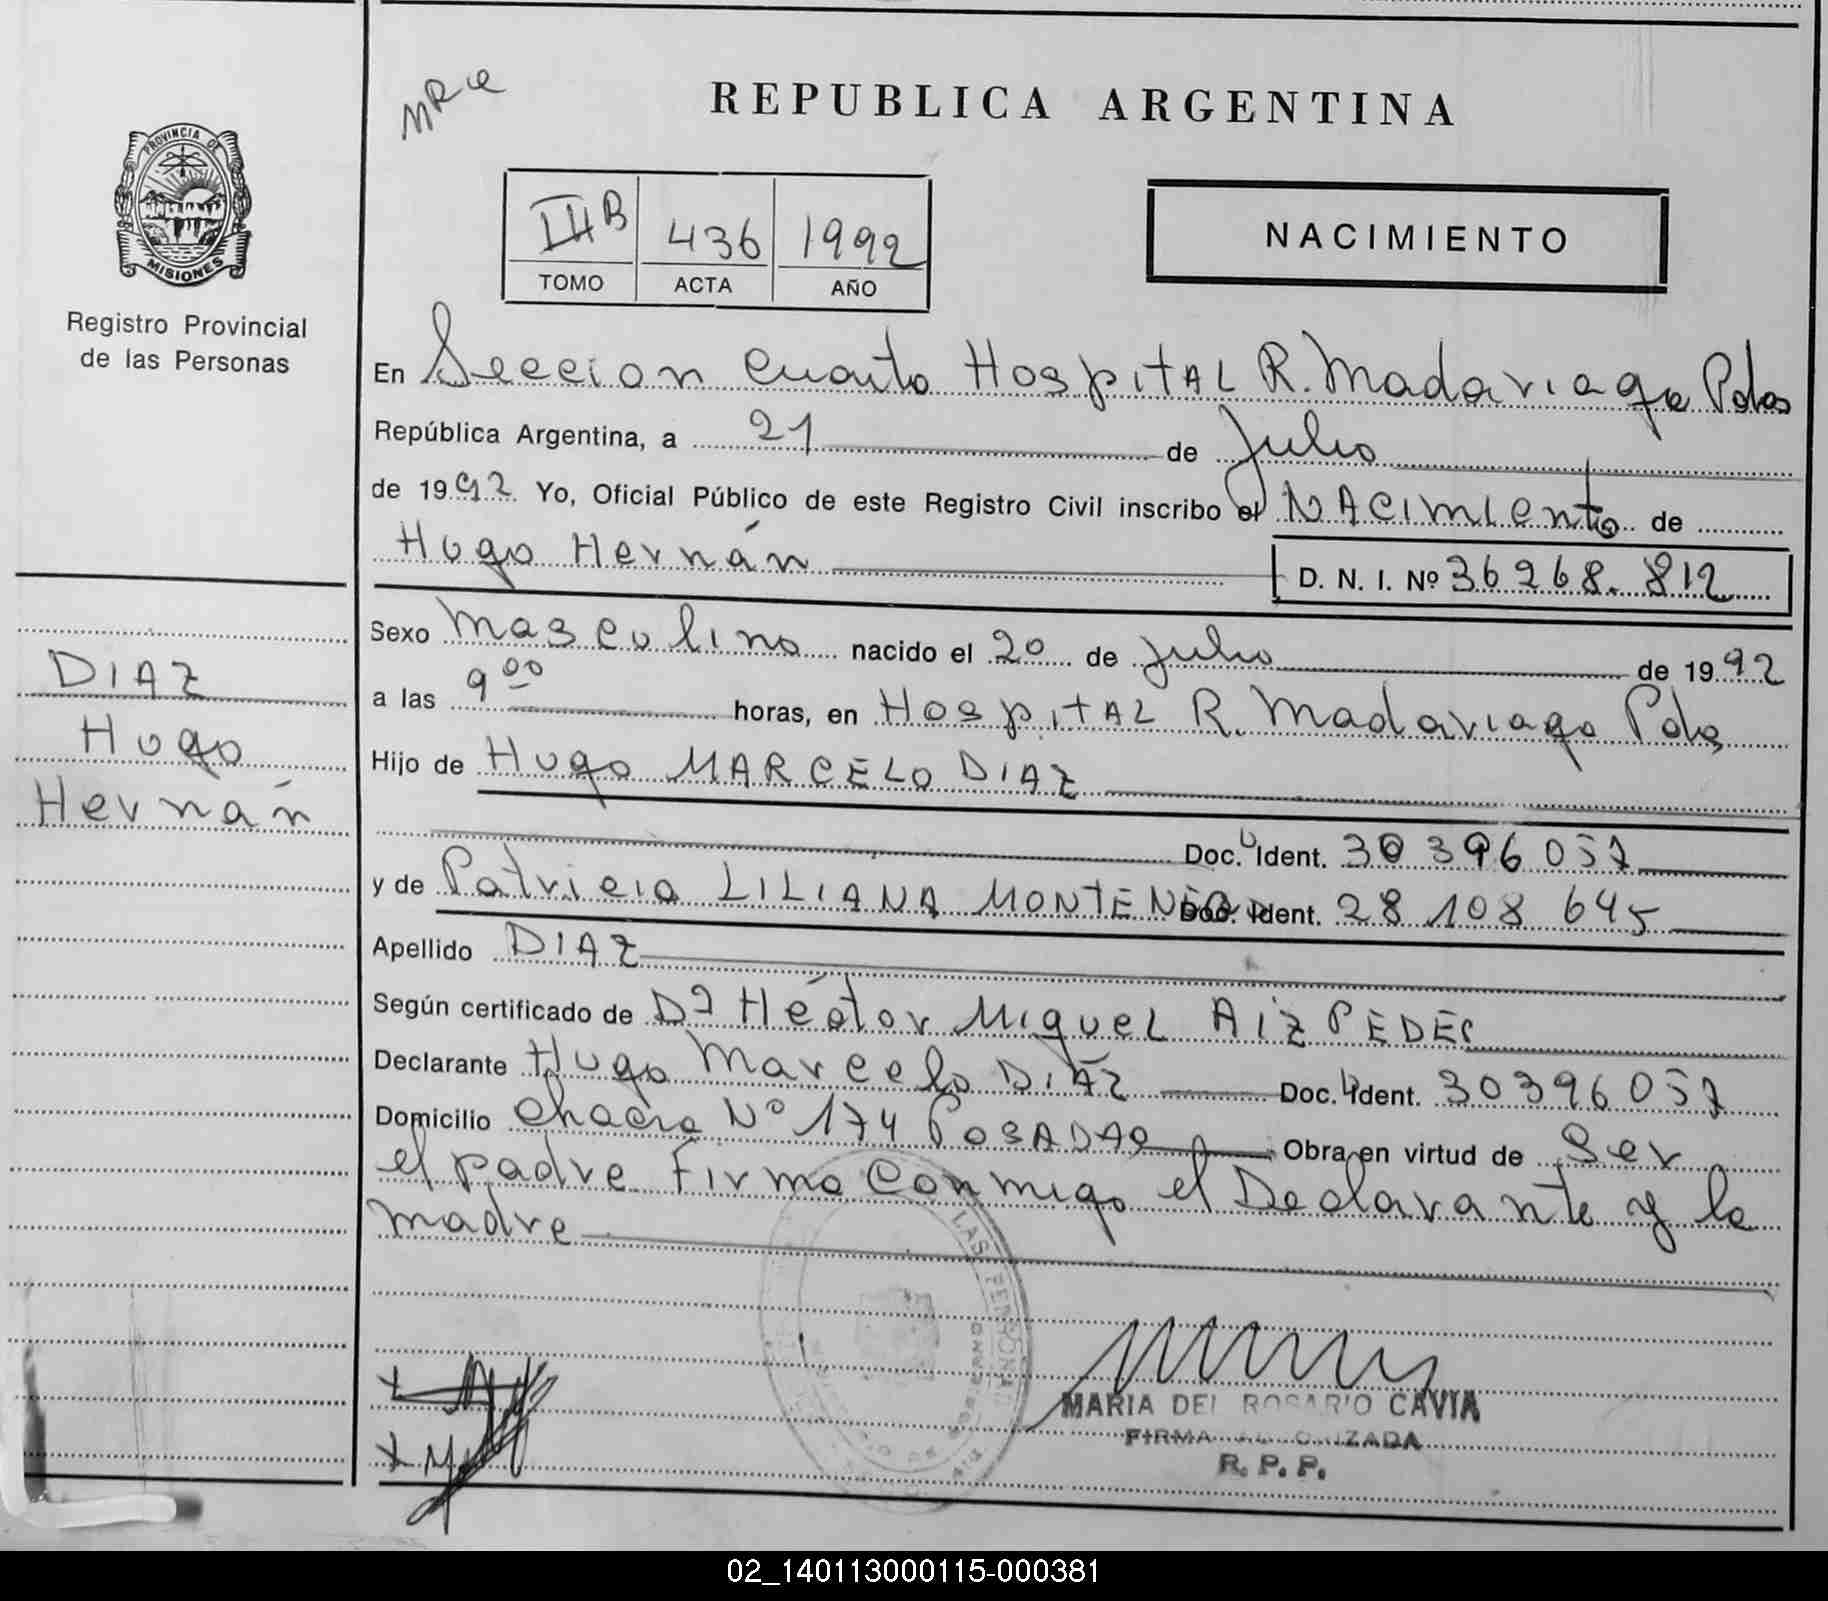 REPUBLICA ARGENTINA
PROVINCIA DE
MISIONES
Registro Provincial
de las Personas
III B 436 1992
TOMO ACTA AÑO
NACIMIENTO
En Seccion Cuarta Hospital R. Madariaga Pdas
República Argentina, a 21 de Julio
de 1992 Yo, Oficial Público de este Registro Civil inscribo el NAcimiento de
Hugo Hernán D. N. I. Nº 36268.812
Sexo Masculino nacido el 20 de Julio de 1992
a las 9 00 horas, en HospitAL R. Madariaga Pdas
Hijo de Hugo MARCELO DIAZ
Doc. Ident. 30396057
y de Patricia LILIANA MONTENEGRO Doc. Ident. 28 108 645
Apellido DIAZ
Según certificado de Dr Héctor Miguel
Declarante Hugo Marcelo DIAZ Doc. Ident. 30396057
Domicilio Chacra Nº 174 POSADAS Obra en virtud de Ser
el padre Firma conmigo el Declarante y la
madre
DIAZ
Hugo
Hernán
LAS PERSONAS
MARIA DEL ROSARIO CAVIA
FIRMA AUTORIZADA
R. P. P.
02_140113000115-000381